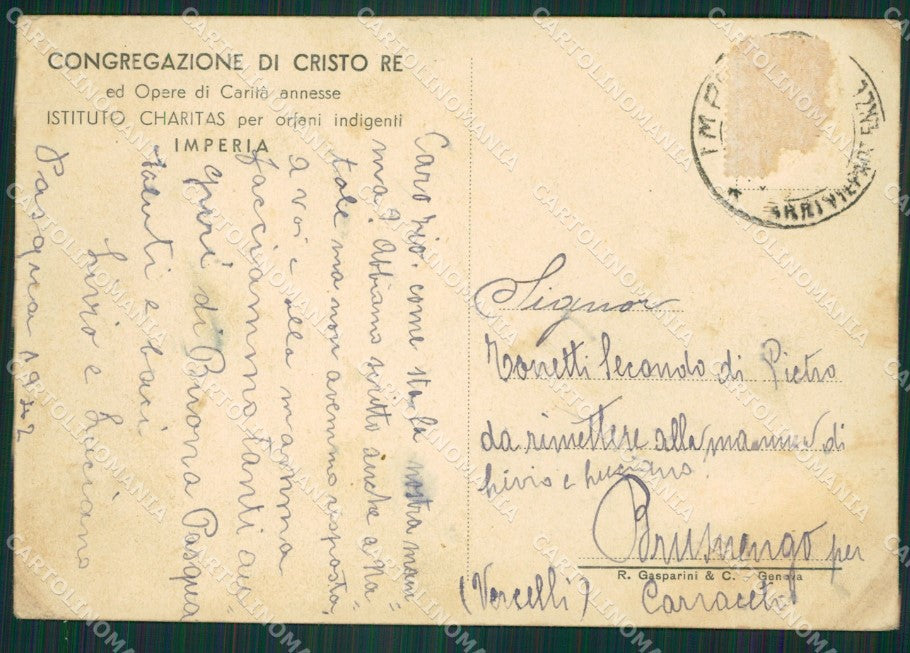 CONGREGAZIONE DI CRISTO RE
ed Opere di Carità annesse
ISTITUTO CHARITAS per orfani indigenti
IMPERIA
Caro zio: come sta la nostra mam=
ma? Abbiamo scritto anche a Na=
tale ma non avemmo risposta,
a voi e alla mamma
facciammo tanti au=
guri di Buona Pasqua
saluti e baci
Livio e Luciano
Pasqua 1942
IMP
Signor
Zonetti Secondo di Pietro
da rimettere alla mamma di
Livio e Luciano
Brusnengo per
R. Gasparini & C. - Genova
(Vercelli)
CARTOLINOMANIA